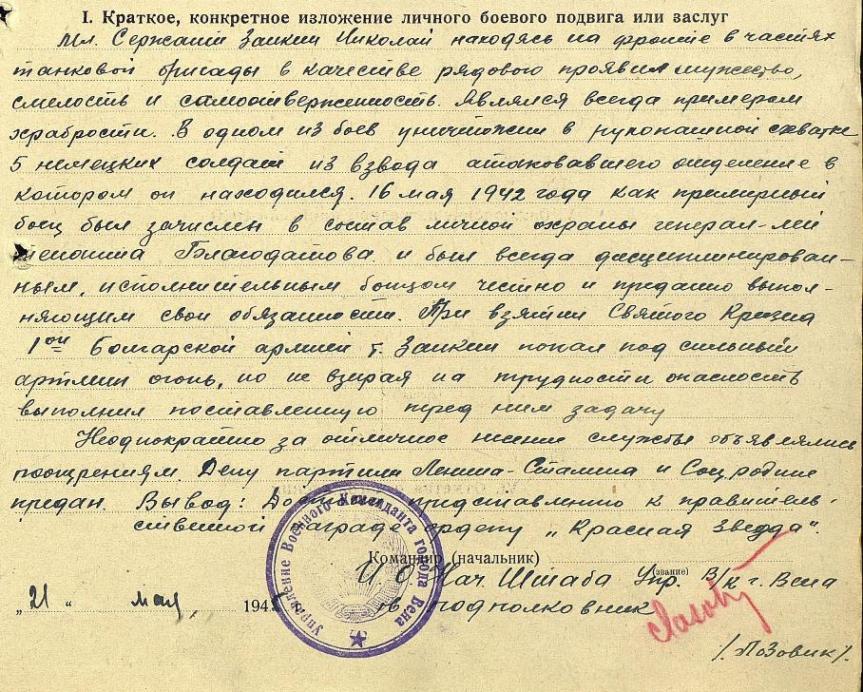 I. Краткое, конкретное изложение личного боевого подвига или заслуг
Мл. Сержант Заикин Николай находясь на фронте в частях
танковой бригады в качестве рядового проявил мужество,
смелость и самоотверженность. Являлся всегда примером
храбрости. В одном из боев уничтожил в рукопашной схватке
5 немецких солдат из взвода атаковавшего отделение в
котором он находился. 16 мая 1942 года как примерный
боец был зачислен в состав личной охраны генерал-лей
тенанта Благодатова и был всегда дисциплинирован-
ным, исполнительным бойцом честно и преданно выпол-
няющим свои обязанности. При взятии Святого Креста
1ой Болгарской армией т. Заикин попал под сильный
артмин огонь, но не взирая на трудности опасность
выполнил поставленную перед ним задачу
Неоднократно за отличное несение службы объявлялись
поощрениям. Делу партии Ленина-Сталина и Соц. родине
предан. Вывод: представлению к правитель-
ственной награде ордену „Красная Звезда".
Командир (начальник)
И О Нач. Штаба Упр. В/к г. Вена
(звание)
„21" мая, 1945 г. подполковник
/Лозовик/.
Управление Военного Коменданта города Вена